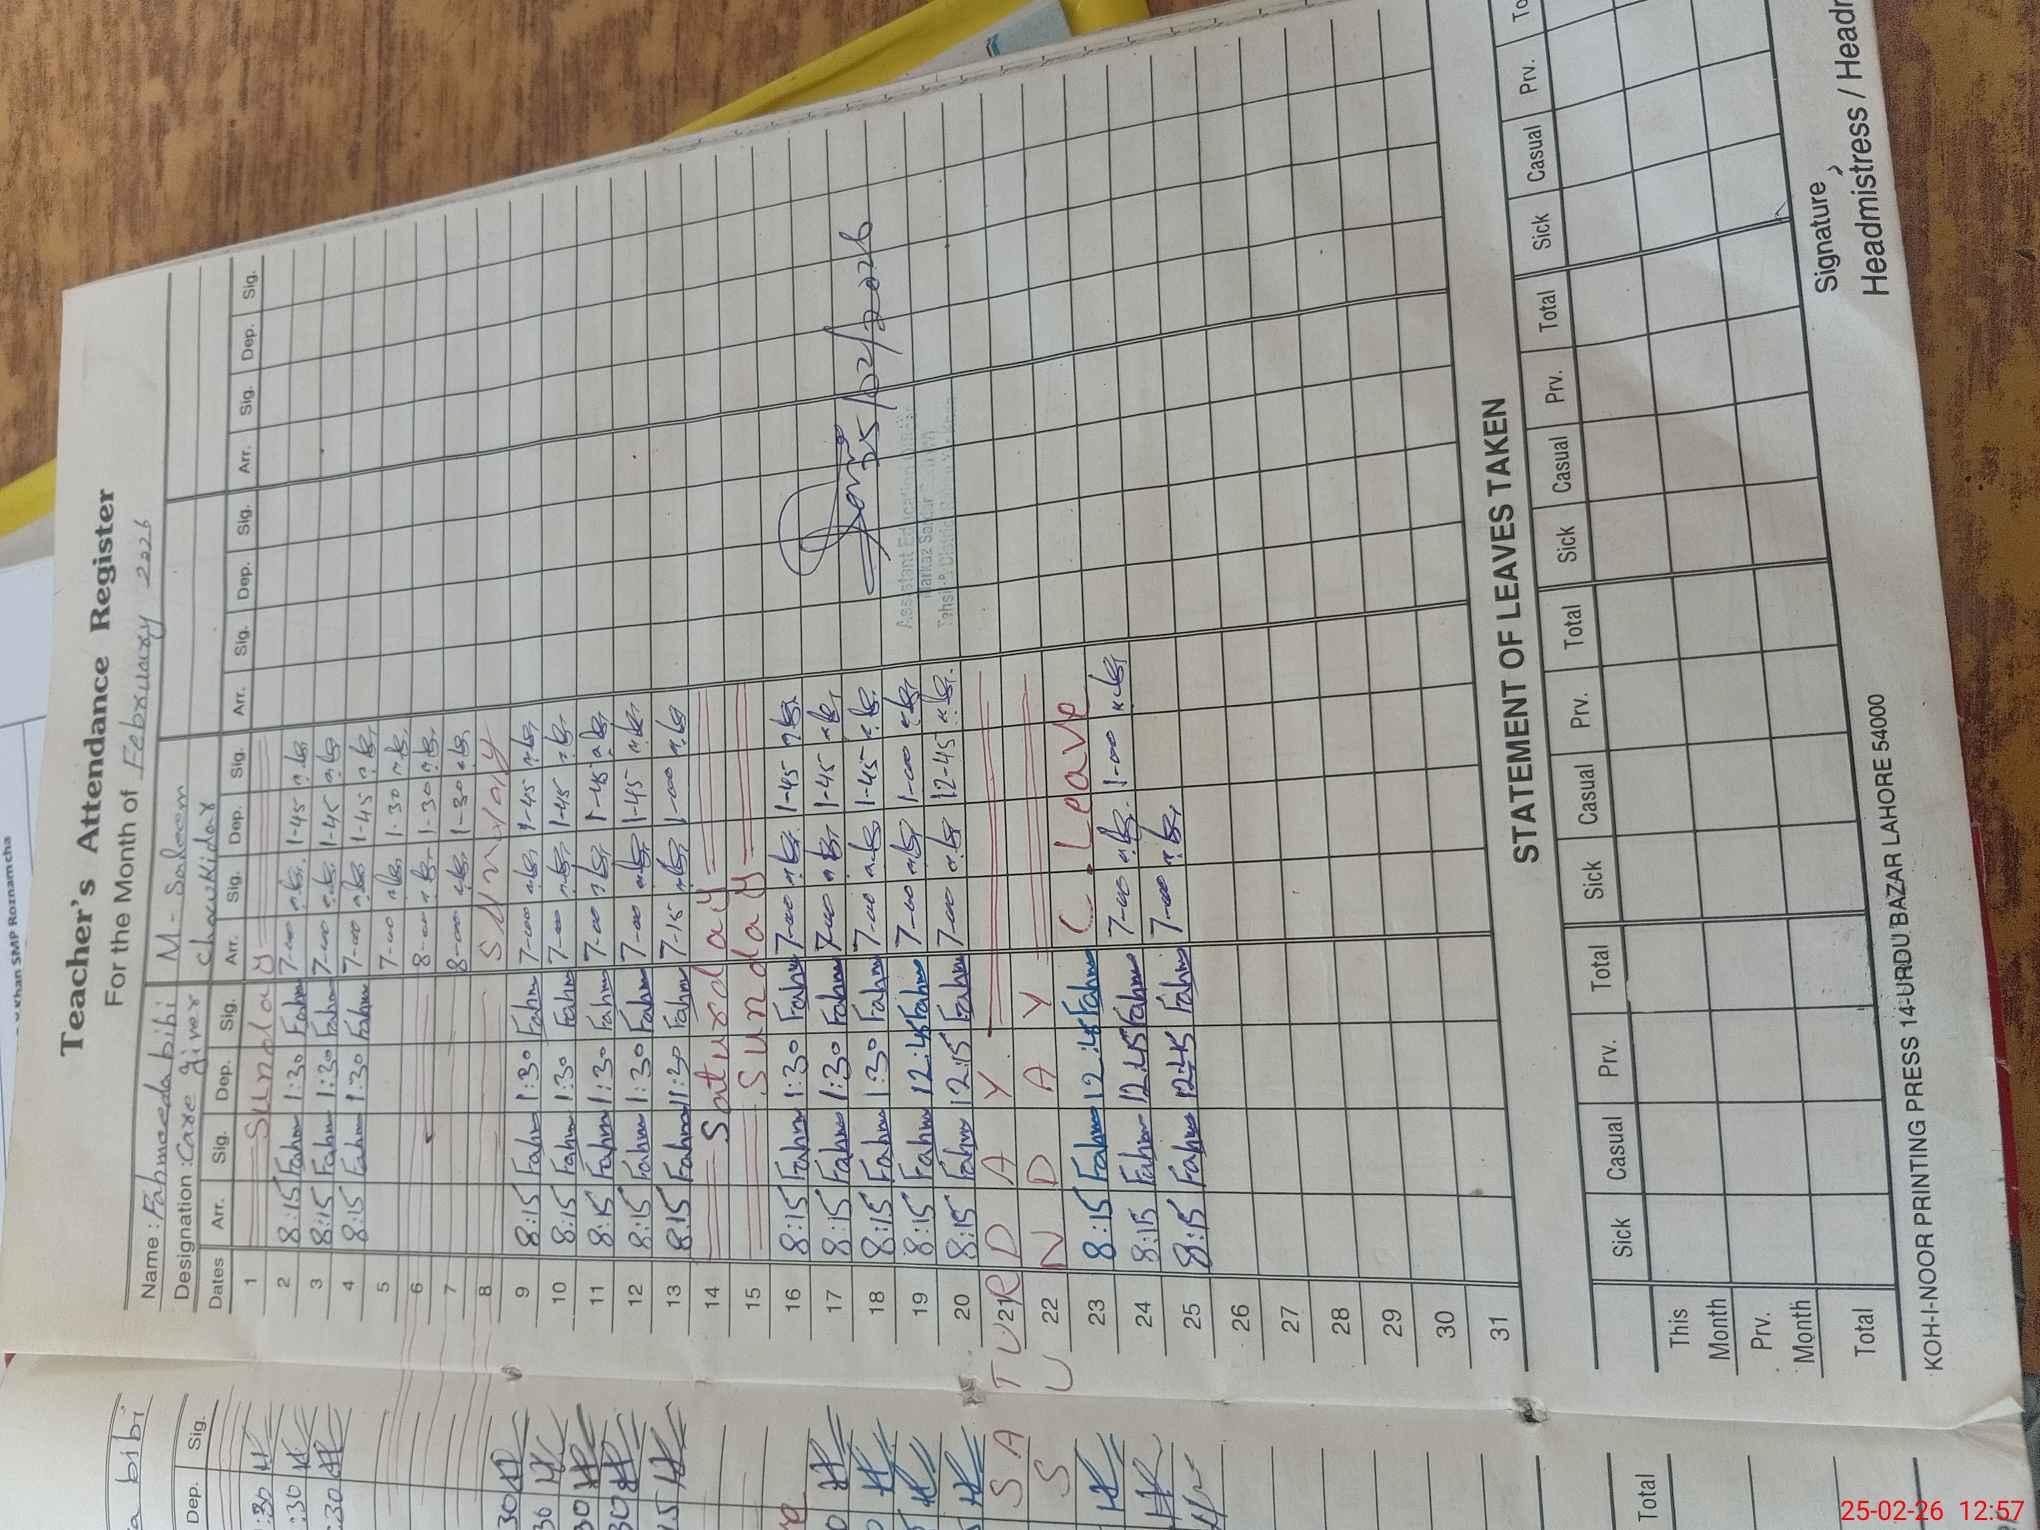 Khan SMP Roznamcha
Teacher's Attendance Register
For the Month of February 2026
Name : Fahmeeda bibi M - Saleem
Designation : Care giver chowkidar
Dates Arr. Sig. Dep. Sig. Arr. Sig. Dep. Sig. Arr. Sig. Dep. Sig. Arr. Sig. Dep. Sig.
1 Sunday
2 8:15 Fahm 1:30 Fahm 7-00 1-45
3 8:15 Fahm 1:30 Fahm 7-00 1-45
4 8:15 Fahm 1:30 Fahm 7-00 1-45
5 7-00 1-30
6 8-00 1-30
7 8-00 1-30
8 Sunday
9 8:15 Fahm 1:30 Fahm 7-00 1-45
10 8:15 Fahm 1:30 Fahm 7-00 1-45
11 8:15 Fahm 1:30 Fahm 7-00 1-45
12 8:15 Fahm 1:30 Fahm 7-00 1-45
13 8:15 Fahm 11:30 Fahm 7-15 1-00
14 Saturday
15 Sunday
16 8:15 Fahm 1:30 Fahm 7-00 1-45
17 8:15 Fahm 1:30 Fahm 7-00 1-45
18 8:15 Fahm 1:30 Fahm 7-00 1-45
19 8:15 Fahm 12:45 Fahm 7-00 1-00
20 8:15 Fahm 12:15 Fahm 7-00 12-45
21 SATURDAY
22 SUNDAY
23 8:15 Fahm 12:45 Fahm C. Leave
24 8:15 Fahm 12:45 Fahm 7-00 1-00
25 8:15 Fahm 12:45 Fahm 7-00
26
27
28
29
30
31
25/02/2026
Assistant Education Officer
Markaz Sadar
STATEMENT OF LEAVES TAKEN
Sick Casual Prv. Total Sick Casual Prv. Total Sick Casual Prv. Total Sick Casual Prv. To
This Month
Prv. Month
Total
Signature
Headmistress / Headm
KOH-I-NOOR PRINTING PRESS 14-URDU BAZAR LAHORE 54000
a bibi
Dep. Sig.
:30
:30
:30
30
30
30
30
15
Total
25-02-26 12:57